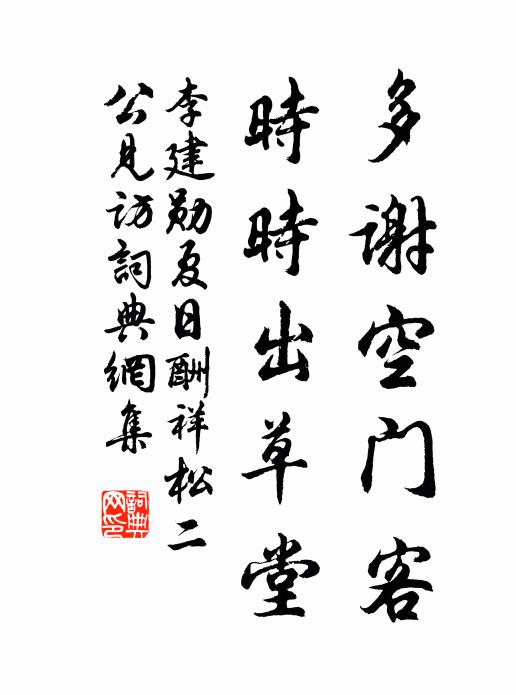 多謝空門客
時時出草堂
李建勋夏日酬祥松二
公見訪詞典網集
詞典网印